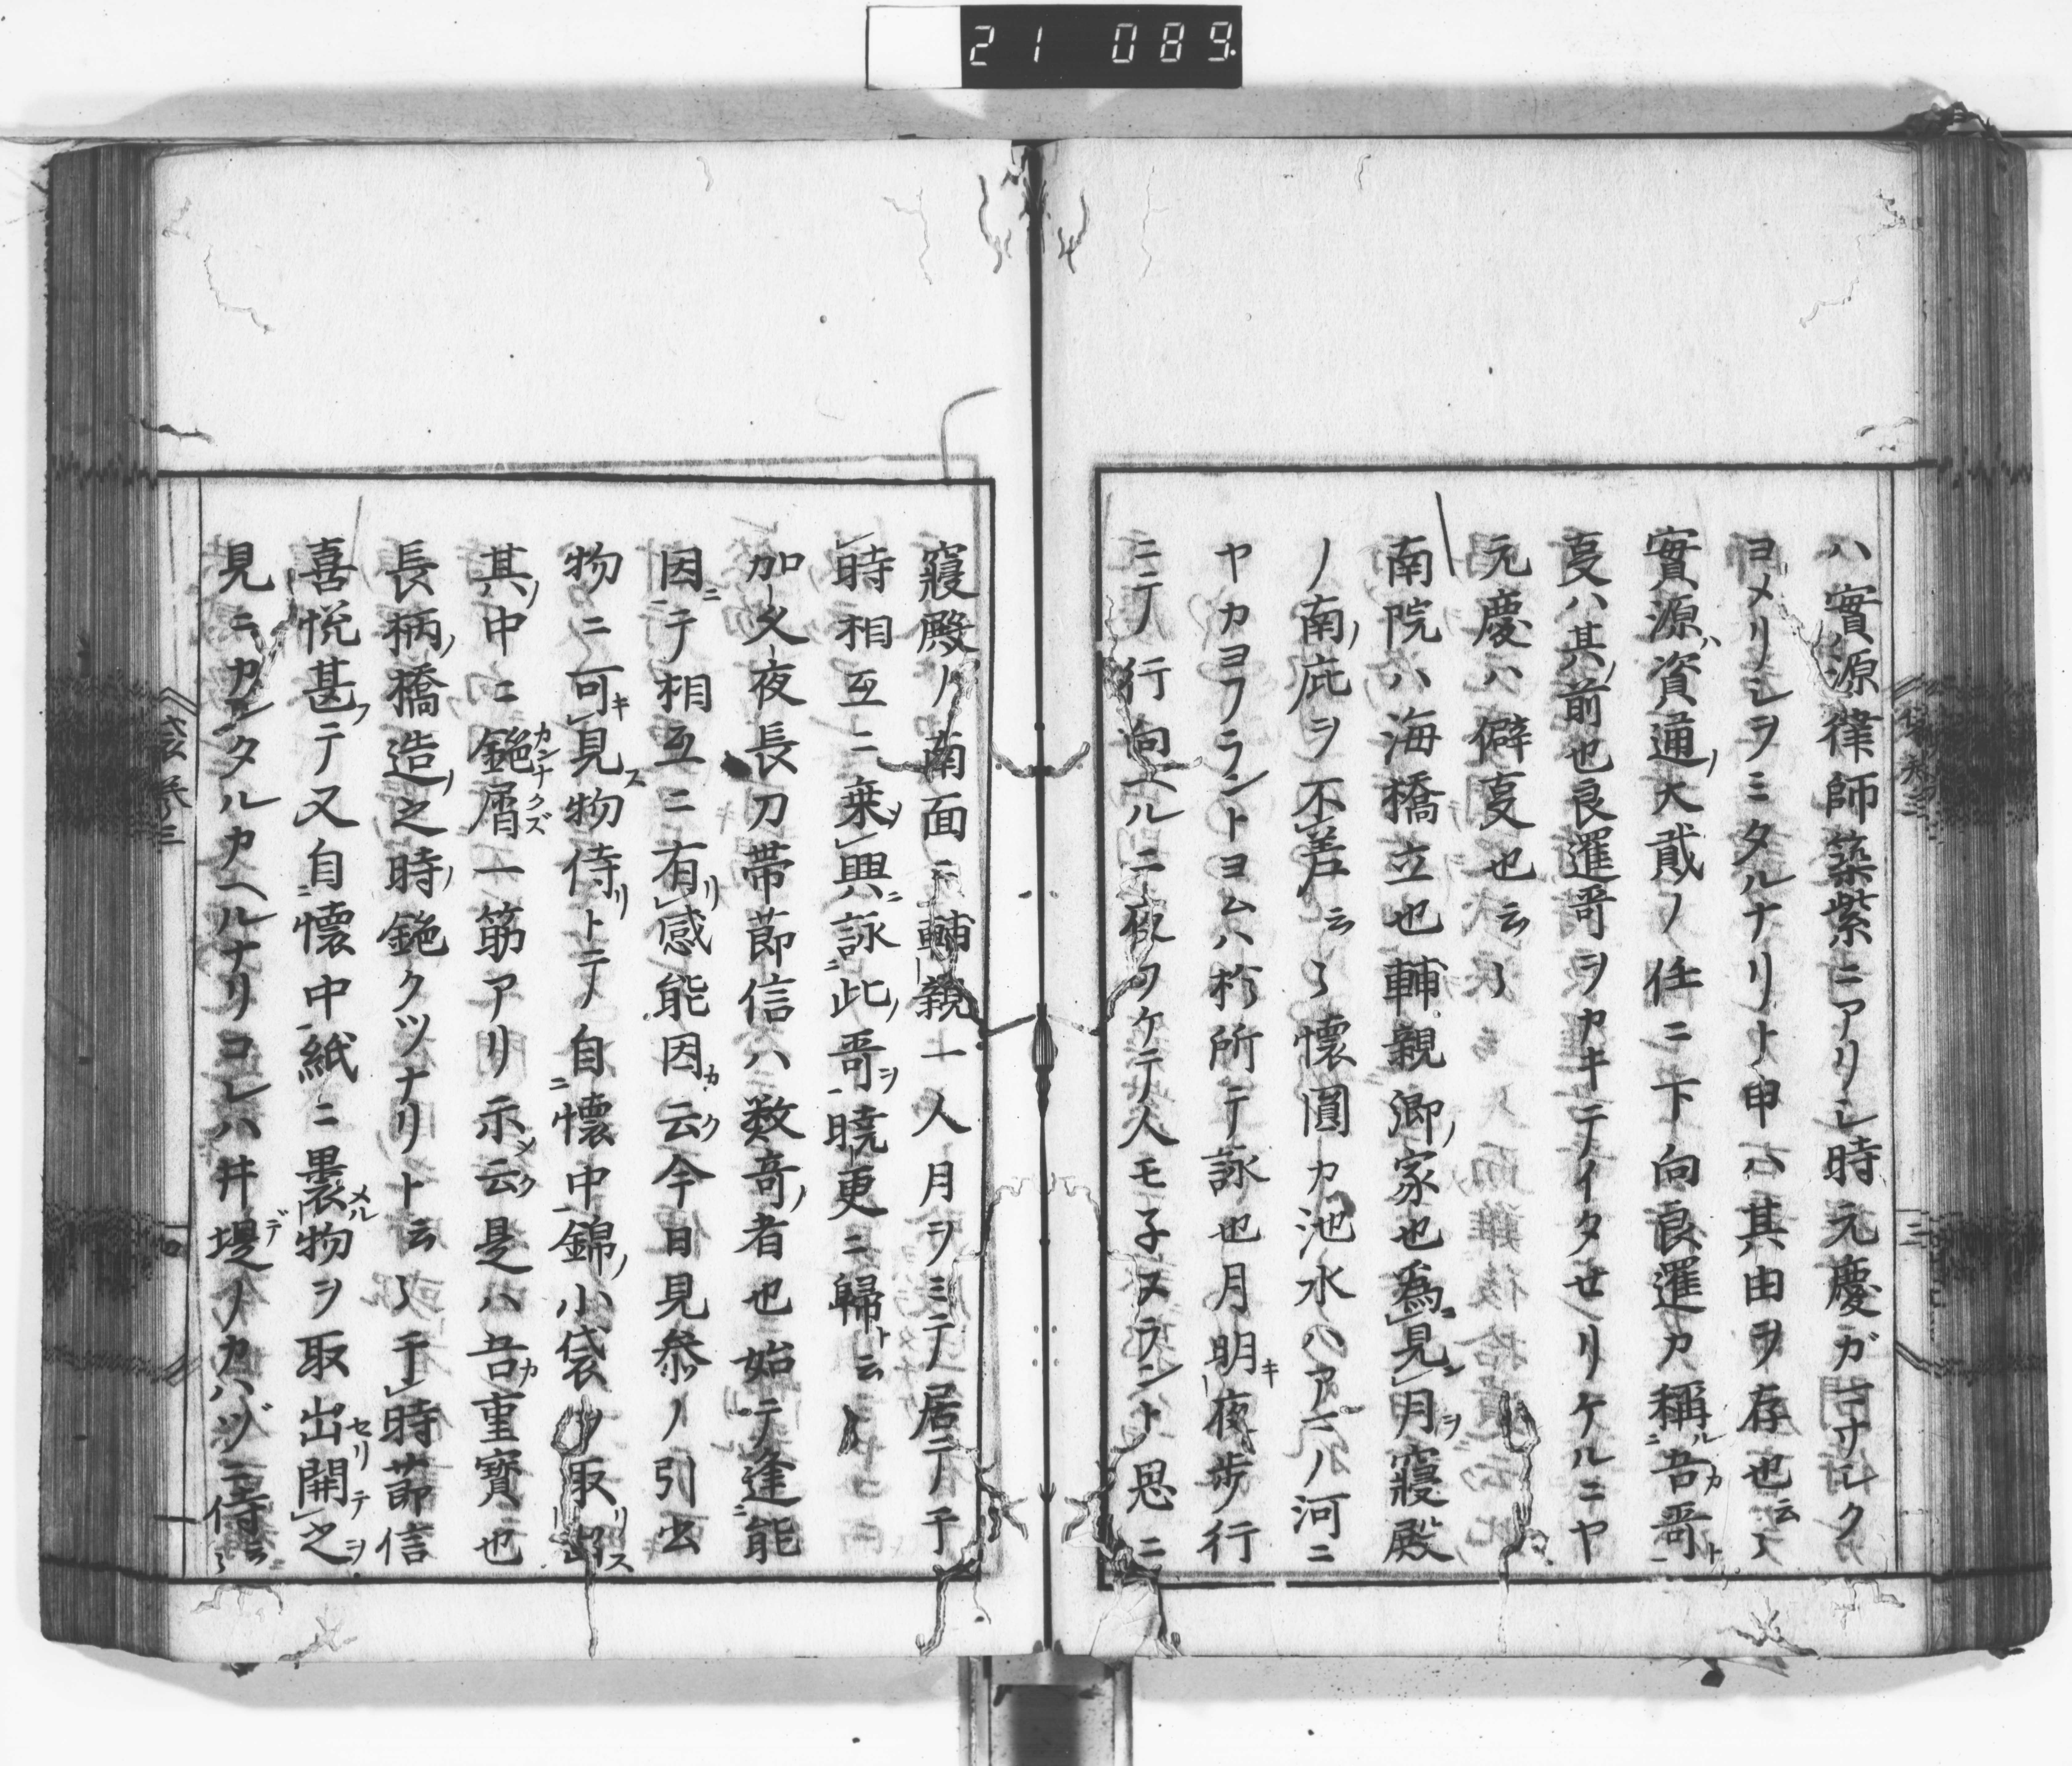 21 089
ハ實源律師築紫ニアリシ時元慶ガコナシク
ヨメリシヲミタルナリト申ハ其由ヲ存也云〻
實源ハ資通ノ大貳ノ任ニ下向良暹カ稱ルニ吾カ哥ト
㕝ハ其ノ前也良暹哥ヲカキテイタセリケルニヤ
元慶ハ僻㕝也云〻
南院ハ海橋立也輔親卿ノ家也爲見ンカ月ヲ寢殿
ノ南ノ庇ヲ不差云〻懷圓カ池水ハアマノ河ニ
ヤカヨフラントヨムハ於此所テ詠也月明キ夜歩行
ニテ行向ヘルニ夜フケテ人モ子ヌラント思ニ
寢殿ノ南面ニ輔親一人月ヲミテ居テ于
時相互ニ乗シ興ニ詠ニ此ノ哥ヲ暁更ニ歸ト云〻
加久夜長刀帯節信ハ数奇ノ者也始テ逢ニ能
因ニテ相互ニ有リ感能因カ云ク今日見参ノ引出
物ニ可キ見ス物侍リトテ自ニ懷中錦ノ小袋ヲ取リ出ス
其ノ中ニ鉋屑カンナクズ一筋アリ示シ云ク是ハ吾カ重寳也
長柄ノ橋造ノ之時ノ鉋クツナリト云〻于時節信
喜悦甚フテ又自ニ懷中紙ニ裹メル物ヲ取出セリ開テ之ヲ
見ニカレタルカヘルナリコレハ井堤デノカハヅニ侍ラ〻
袋系三